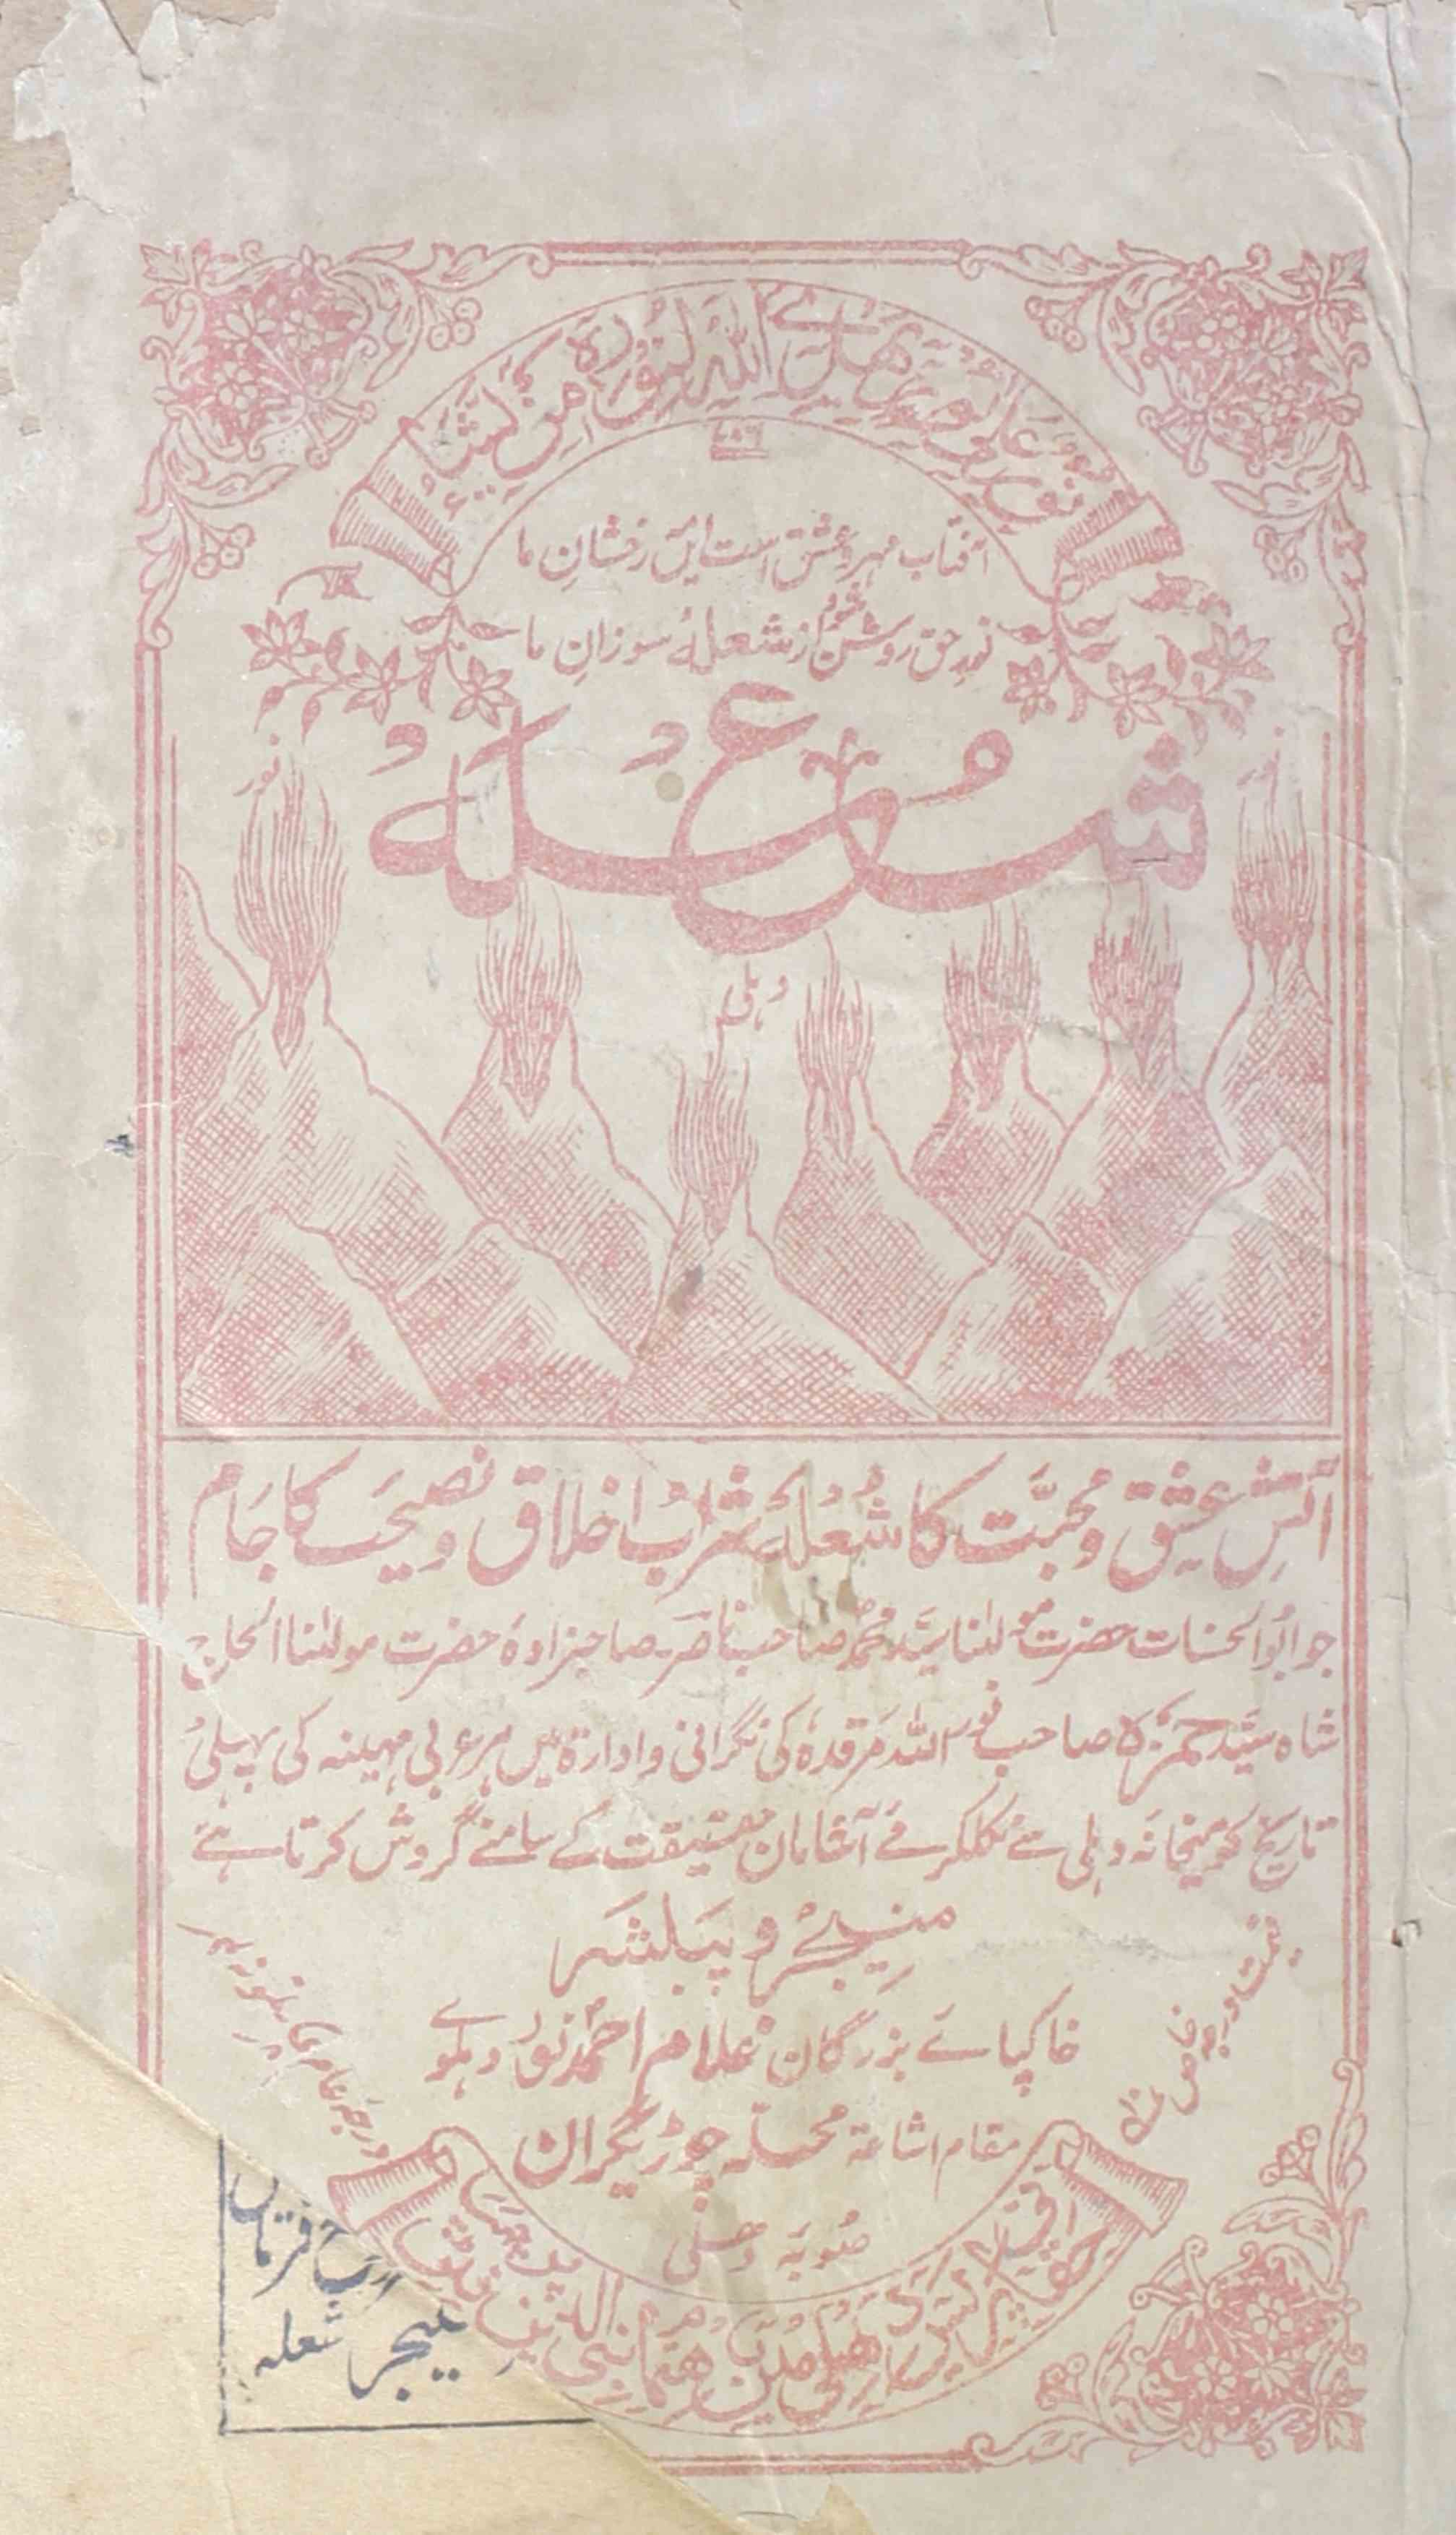 نور علی نور یهدی الله لنوره من یشاء
۷۸۶
آفتاب مہر و عشق است ایں رخشانِ ما
نورِ حق روشن شود از شعلۂ سوزانِ ما
شعلہ
نور
دہلی
آتشِ عشق و محبّت کا شُعلہ شرابِ اخلاق و نصیحت کا جَام
جو ابوالحسنات حضرت مولٰنا سیّد محمّد صاحب ناصر صاحبزادۂ حضرت مولٰنا الحاج
شاہ سیّد حمزہ صاحب نور اللہ مرقدہٗ کی نگرانی و ادارۃ میں ہر عربی مہینہ کی پہلی
تاریخ کو میخانہ دہلی سے نکلکر مے آشامان حقیقت کے سامنے گردش کرتا ہے
منیجر و پبلشر
خاکپائے بزرگان غلام احمد نور دہلوے
مقام اشاعۃ محلہ چوڑیگران
صُوبَہ دھلی
منیجر شعلہ